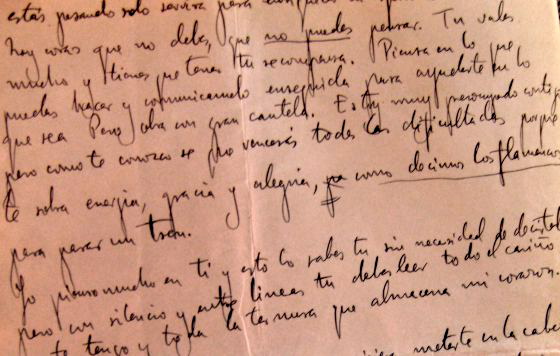 estás pasando solo servirá para
hay cosas que no debes, que no puedes pensar. Tu vales
mucho y tienes que tener tu recompensa. Piensa en lo que
puedas hacer y comunícamelo enseguida para ayudarte en lo
que sea. Pero obra con gran cautela. Estoy muy preocupado contigo
pero como te conozco se que vencerás todas las dificultades porque
te sobra energía, gracia y alegría, ya como decimos los flamencos
para parar un tren.
Yo pienso mucho en ti y esto lo sabes tu sin necesidad de decírtelo
pero con silencio y entre líneas tu debes leer todo el cariño
te tengo y toda la ternura que almacena mi corazón.
meterte en la cabe